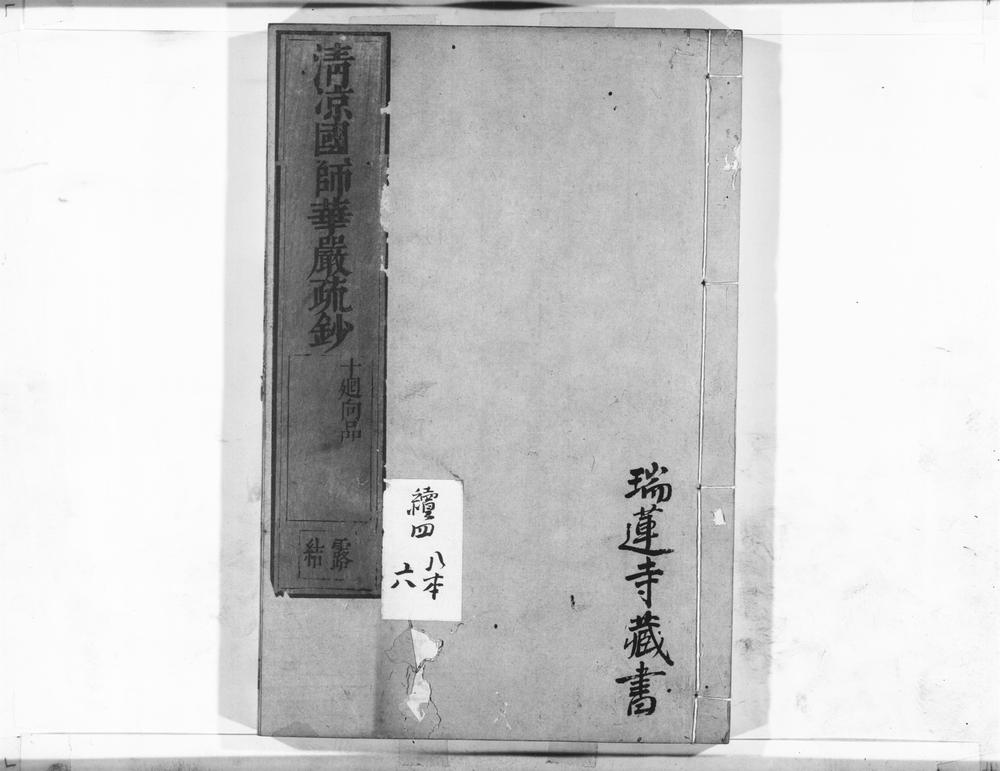 瑞蓮寺藏書
清涼國師華嚴疏鈔
十廻向品
露
結
續四
八本
六